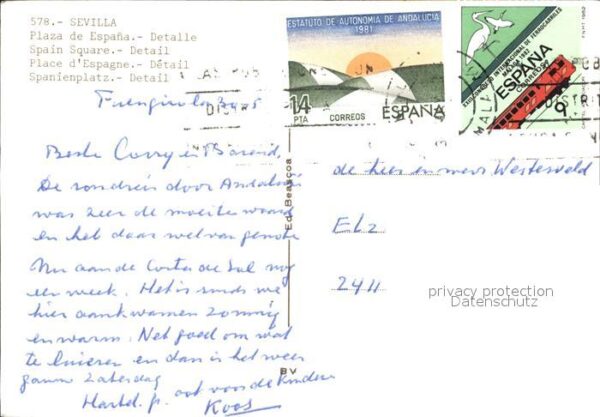 578.- SEVILLA
Plaza de España.- Detalle
Spain Square.- Detail
Place d'Espagne.- Détail
Spanienplatz.- Detail
ESTATUTO DE AUTONOMIA DE ANDALUCIA
1981
14
PTA
CORREOS
ESPAÑA
XXIII CONGRESO INTERNACIONAL DE FERROCARRILES
MALAGA 1982
ESPAÑA
CORREOS
9
Fuengirola
Beste Corry en Barend,
De rondreis door Andalusië
was zeer de moeite waard
en het daar wel van genoten
Nu aan de Costa de Sol nog
een week. Het is sinds we
hier aankwamen zonnig
en warm. Net goed om wat
te luieren en dan is het weer
gauw zaterdag
Hartel. gr. ook voor de kinderen
Koos
Ed. Beascoa
BV
de heer en mevr Westerveld
Elz
2411
privacy protection
Datenschutz